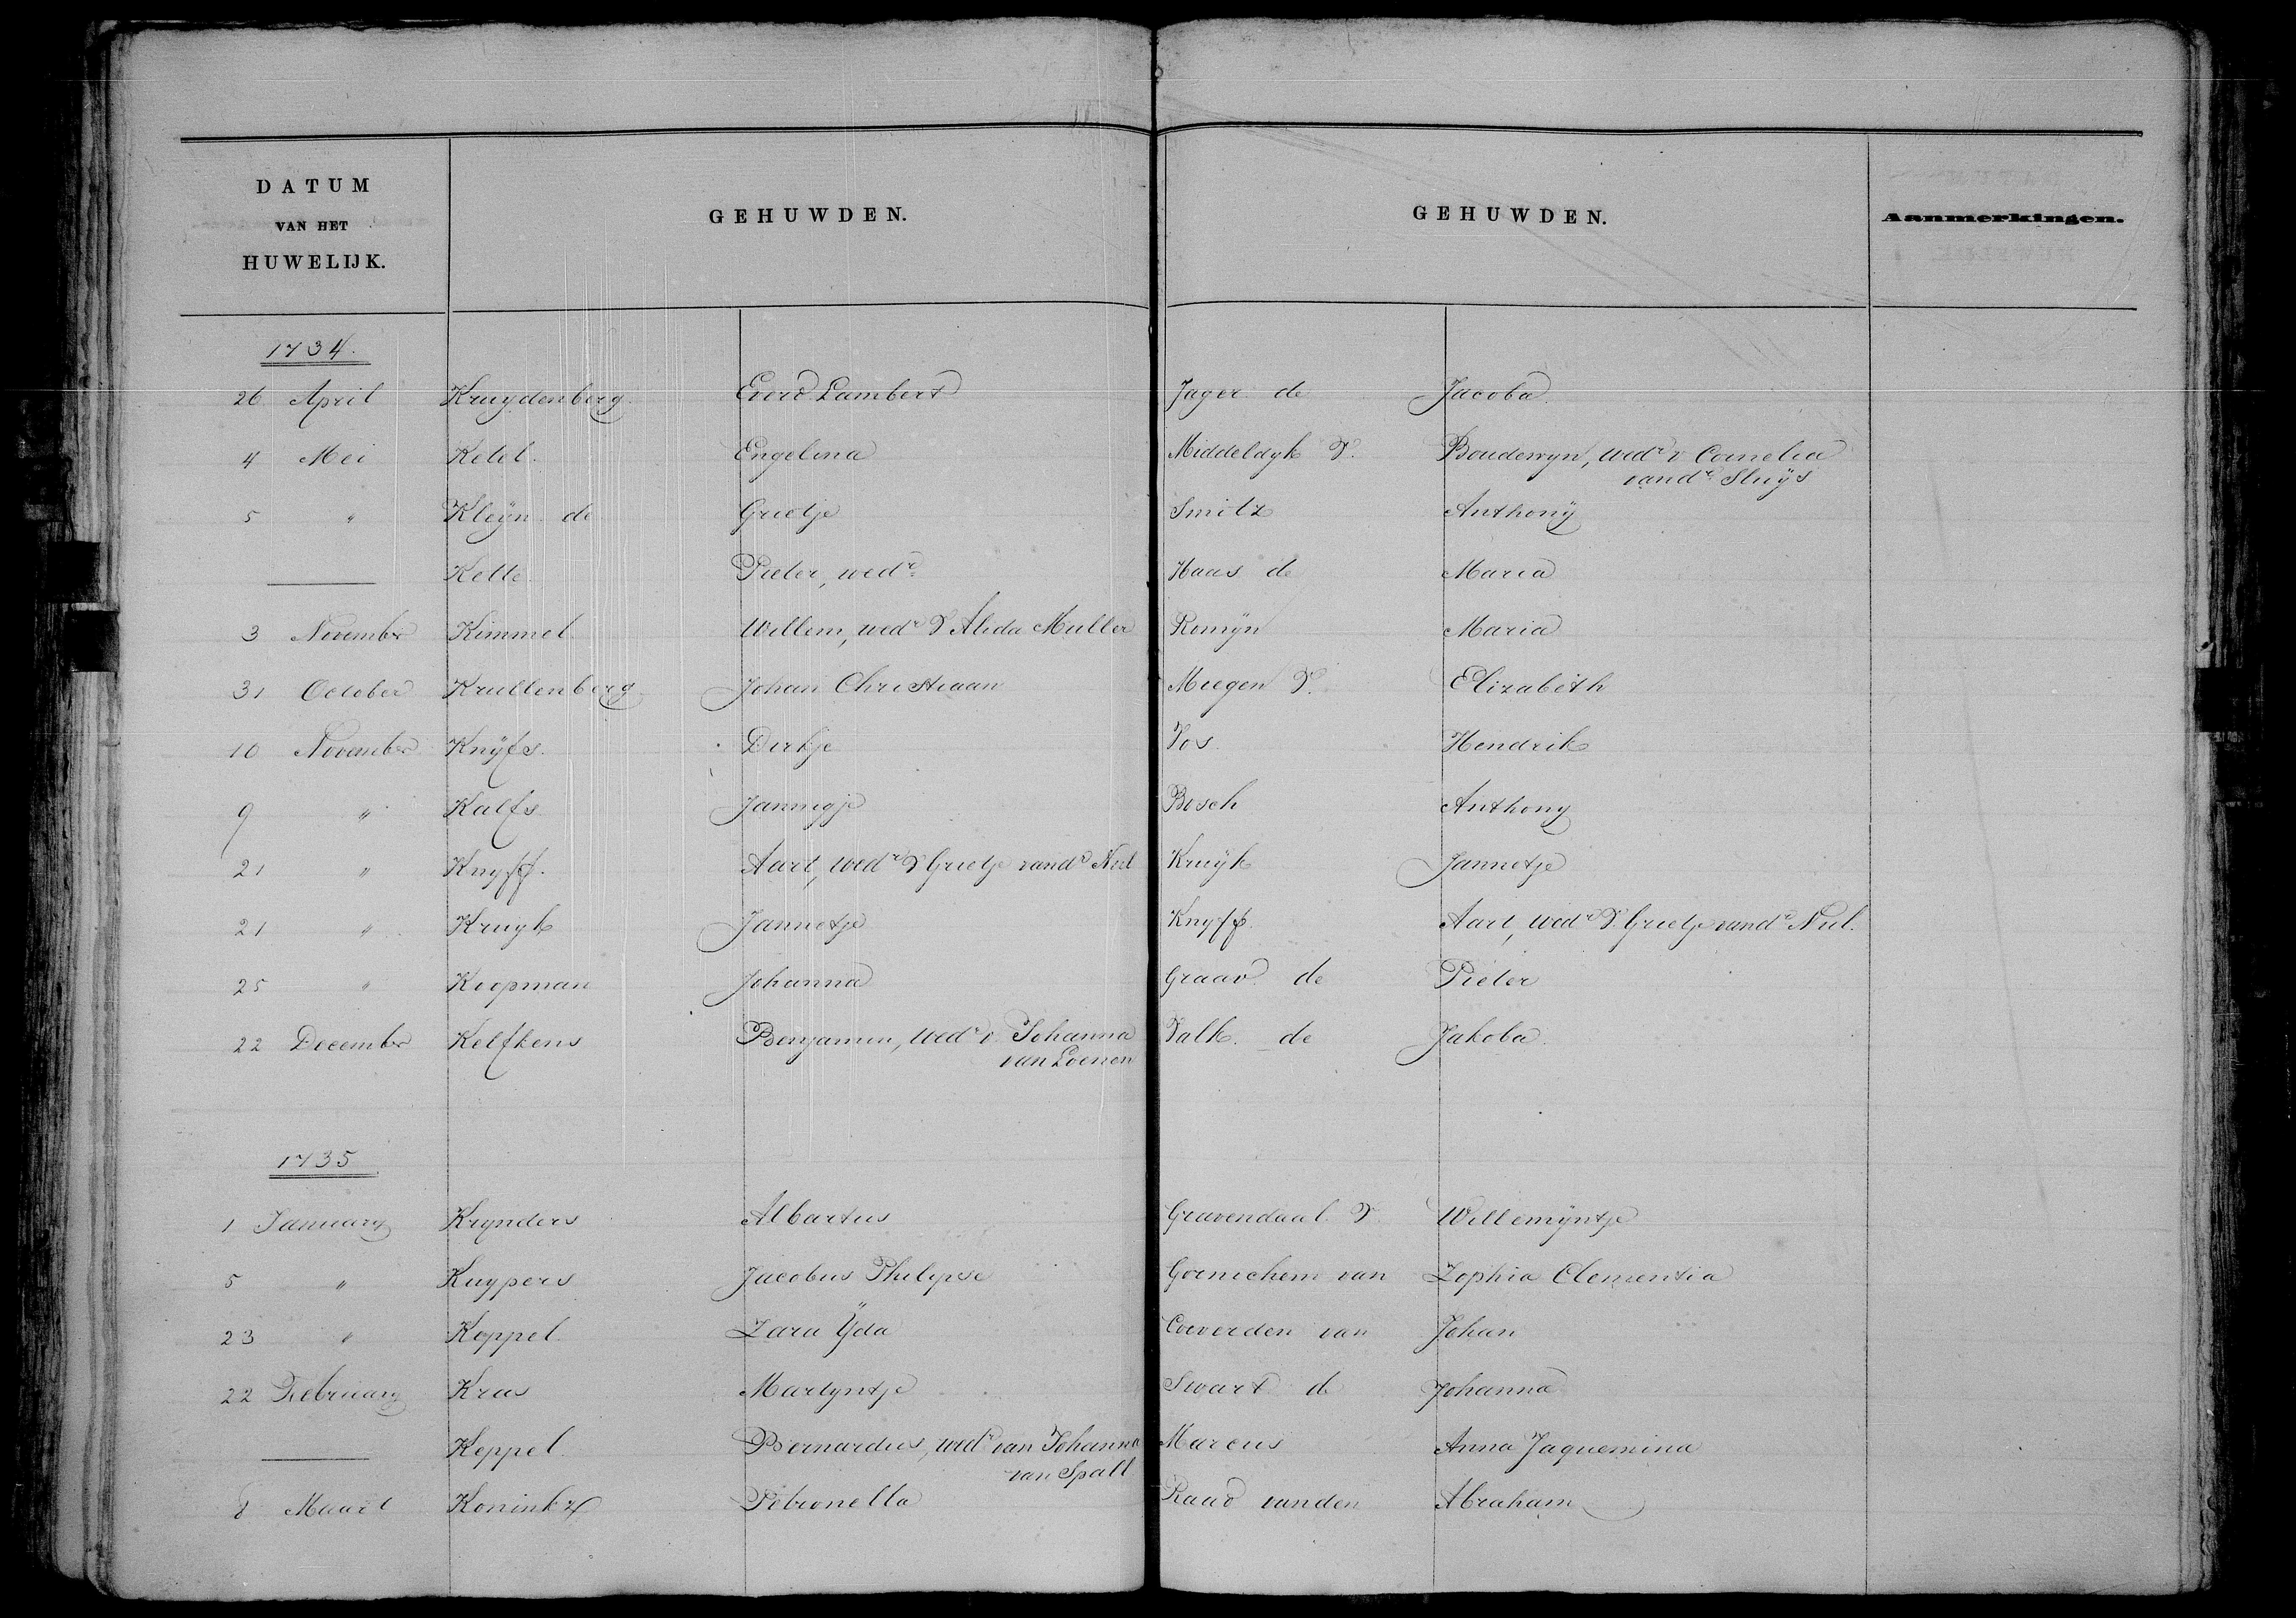 DATUM VAN HET HUWELIJK. GEHUWDEN. GEHUWDEN. Aanmerkingen.
1734.
26 April Kruydenberg Everd Lambert Jager de Jacoba.
4 Mei Ketel. Engelina Middeldyk V. Boudewyn, wedr v Cornelia
vandr Sluÿs
5 " Kleÿn de Grietje Smitz Anthonÿ
— Kette Pieter, wedr. Haas de Maria
3 November Kimmel Willem, wedr V Alida Muller Romÿn Maria
31 October Krullenberg Johan Christiaan Meegen V. Elizabeth
10 November Knÿfs. Dirkje Vos Hendrik
9 " Kalfs Jannigje Bosch Anthony
21 " Knyff. Aart, wedr V Grietje vandr Niel Kruÿk Jannetje
21 " Kruyk Jannetje Knyff. Aart, wedr V. Grietje vandr Niel.
25 " Koopman Johanna Graav de Pieter
22 December Kelfkens Benjamin, wedr v. Johanna Valk. de Jakoba.
van Loenen
1735
1 January Krynders Albartus Gravendaal. V. Willemÿntje
5 " Kuypers Jacobus Philipse Gornichem van Zophia Clementia
23 " Koppel Zara Ÿda Coeverden van Johan
22 February Kras Martyntje Swart de Johanna
— Keppel Bernardus, wedr van Johanna Marcus Anna Jaquemina
van Spall
8 Maart Koninkx Petronella Raad vanden Abraham